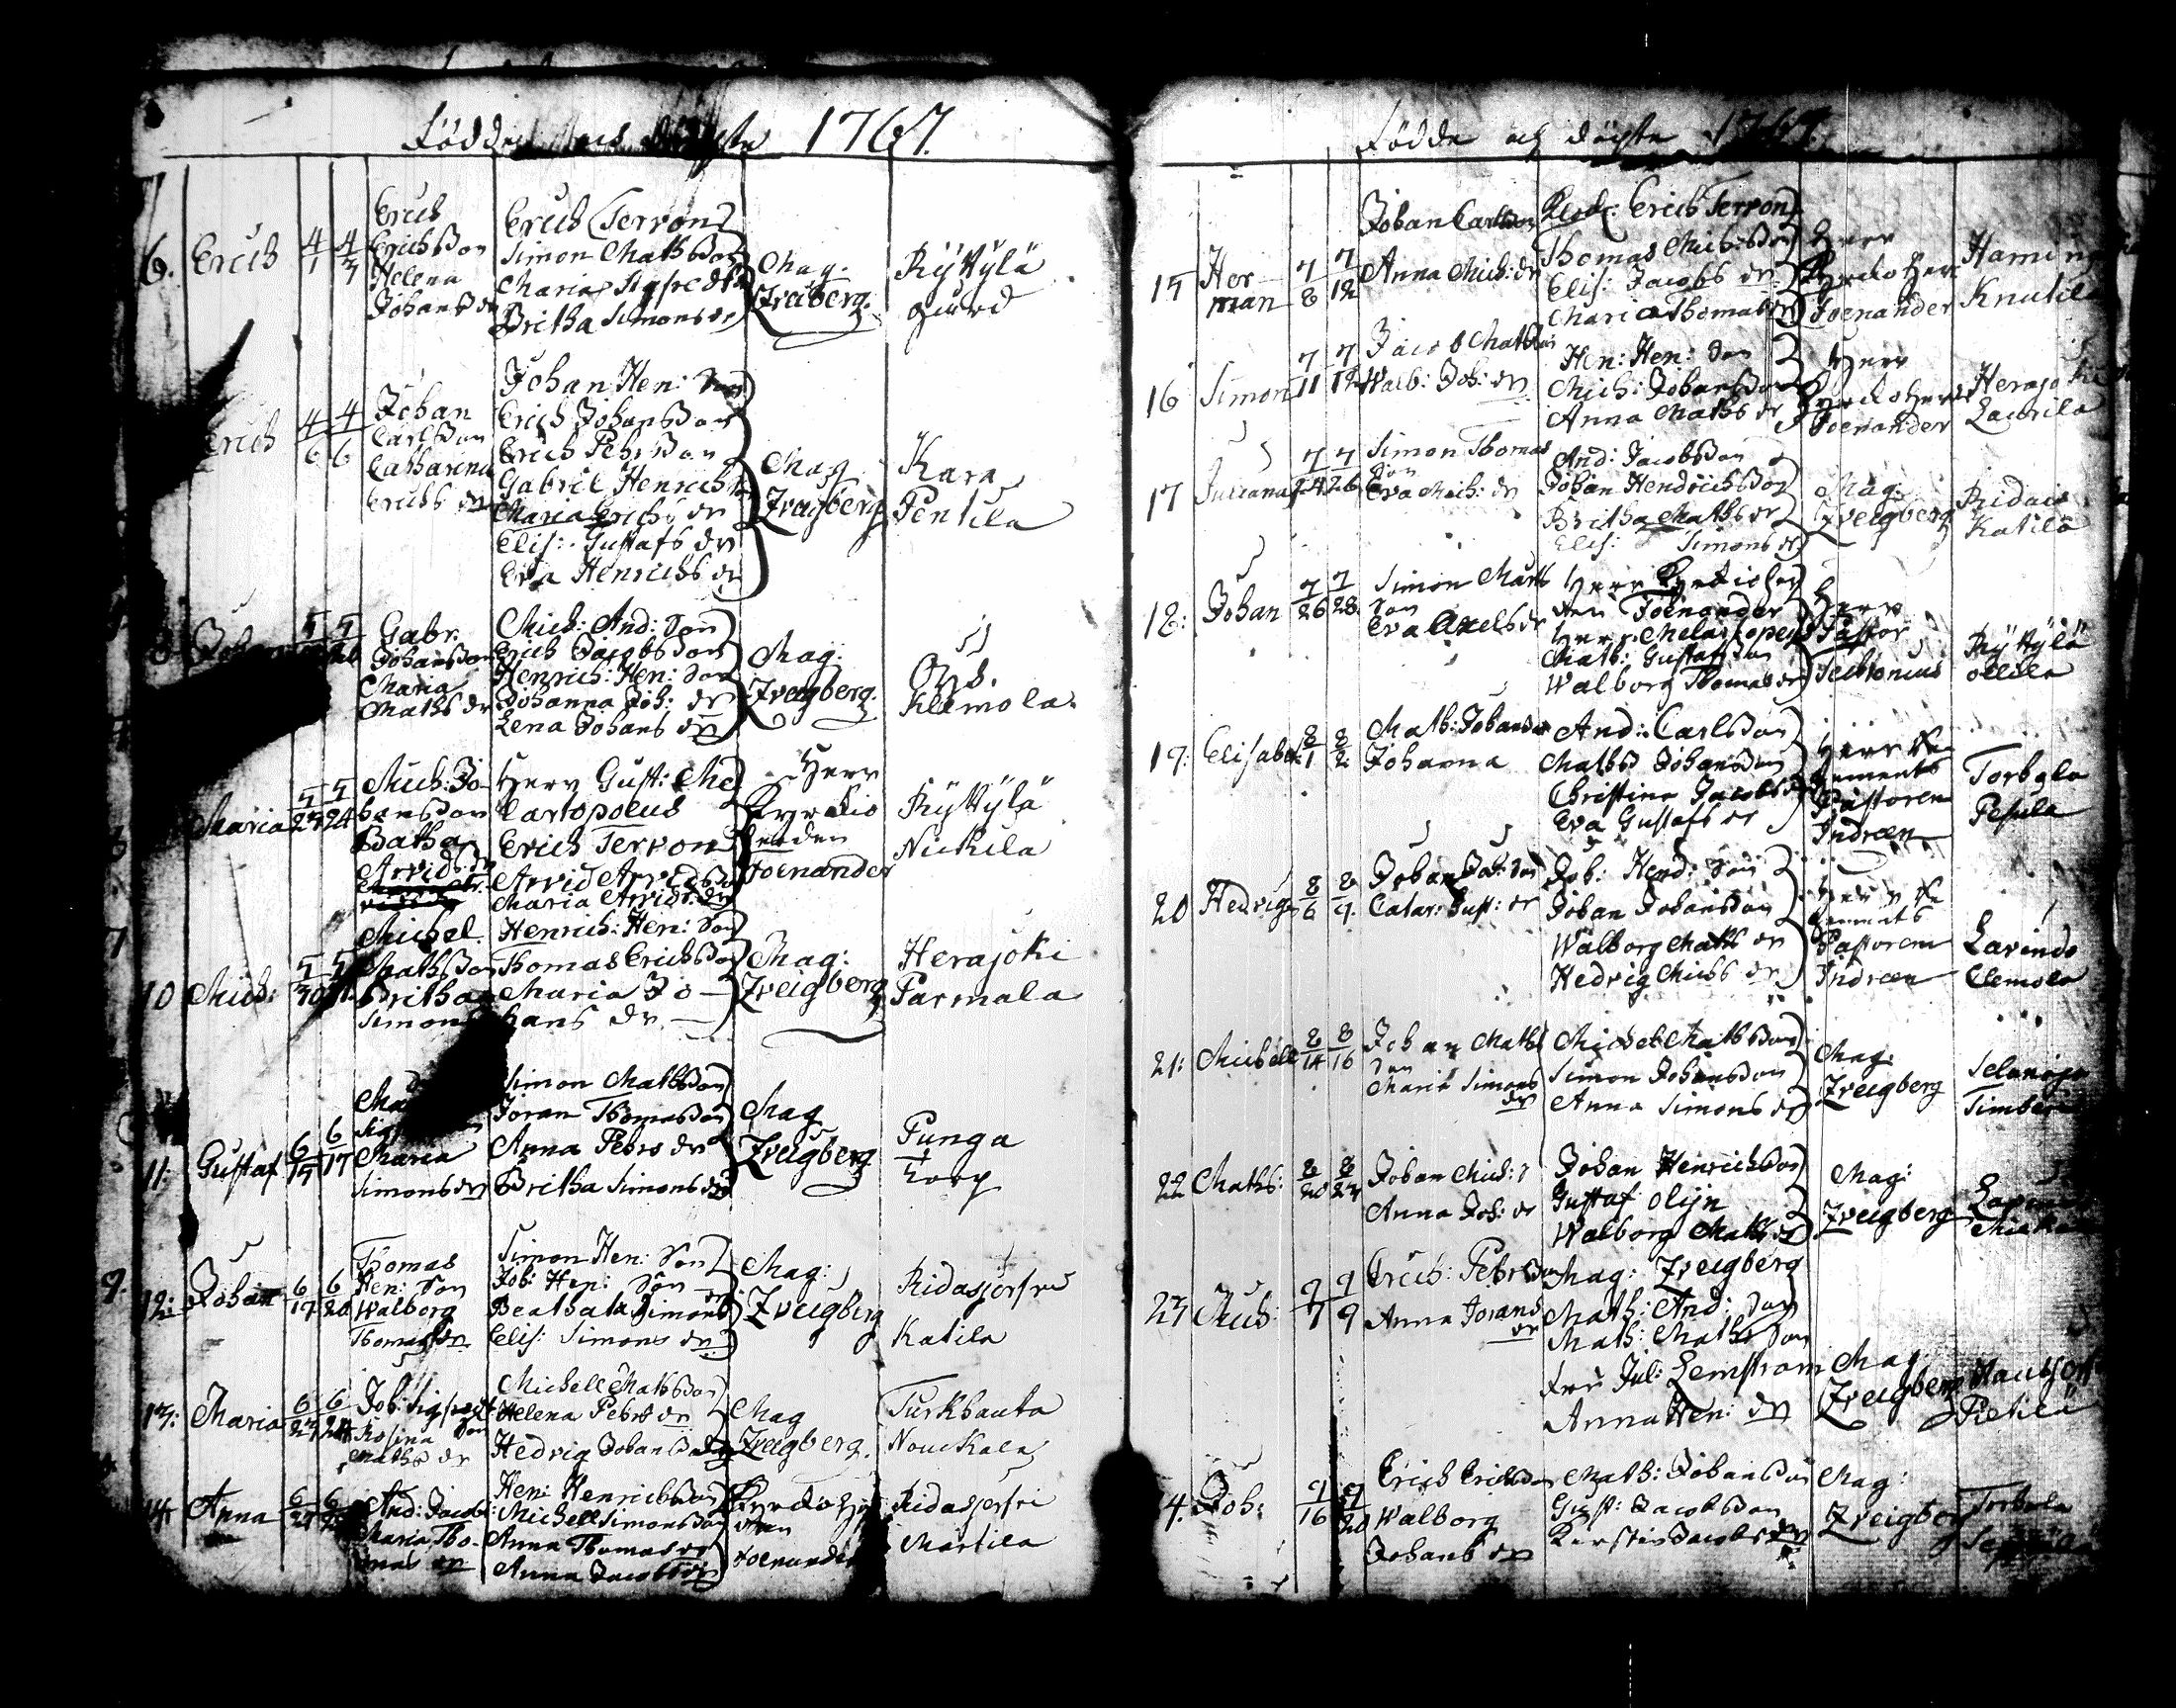 Födde 1767.
6. Erich 4/1 4/3
Erich
Erichsson
Helena
Johans dr
Erich Terron
Simon Mathsson
Maria Sigfreds dr
Britha Simons dr
Mag.
Zveigberg.
Ryttylä
gård
Erich 4/6 4/6
Johan
Carlsson
Catharina
Erichs dr
Johan Hen: son
Erich Johansson
Erich Pehrsson
Gabriel Henrichs
Maria Erichs dr
Elis: Gustafs dr
Eva Henrichs dr
Mag
Zveigberg
Kara
Pentila
8
Gabr.
Johansson
Maria
Maths dr
Mich: And: son
Erich Jacobsson
Henrich: Hen: son
Johanna Joh: dr
Lena Johans dr
Mag:
Zveigberg.
Oja.
Klemola.
Maria 5/23 5/24
Mich: Jo-
hansson
Arvids dr
Herr Gust: Me
lartopolus
Erich Terron
Arvid Arvidsson
Maria Arvids dr
Herr
Kyrckio
herden
Foenander
Ryttylä
Nickila
10 Mich: 5/30
Michel
Mathsson
Britha
Simons
Henrich: Hen: son
Thomas Erichsson
Maria Jo-
hans dr.
Mag:
Zveigberg
Herajoki
Parmala
11: Gustaf 6/15 6/17
Maria
Simons dr
Simon Mathsson
Joran Thomasson
Anna Pehrs dr
Britha Simons dr
Mag
Zveigberg
Punga
Torp
12: Johan 6/17 6/20
Thomas
Hen: son
Walborg
Thomas dr
Simon Hen: son
Joh: Hen: son
Beatha Simons dr
Elis: Simons dr
Mag:
Zveigberg
Ridasjerfvi
Katila
13: Maria 6/23 6/24
Joh: Sigfreds
son
Rosina
Maths dr
Michell Mathsson
Helena Pehrs dr
Hedvig Johans dr
Mag
Zveigberg.
Turkhauta
Nouckala
14 Anna
And: Jacobs:
Maria Tho-
mas dr
Hen: Henrichsson
Michell Simonsson
Anna Thomas dr
Anna Jacobs dr
Kyrckioher
den
Foenander
Ridasjerfvi
Martila
Födde och döpte 1767.
15 Her-
man 7/8 7/12
Johan Carlsson
Anna Mich: dr
Klock: Erich Terron
Thomas Mich: son
Elis: Jacobs dr
Maria Thomas dr
Herr
Kyrckoher
Foenander
Haming
Knutila
16 Simon 7/11 7/12
Jacob Mathsson
Walb: Joh: dr
Hen: Hen: son
Mich: Johansson
Anna Maths dr
Herr
Kyrckoherd
Foenander
Herajoki
Laurila
17 Juliana 7/24 7/26
Simon Thomas
son
Eva Mich: dr
And: Jacobsson
Johan Hendrichsson
Britha Maths dr
Elis: Simons dr
Mag:
Zveigberg
Ridais
Katila
18: Johan 7/26 7/28
Simon Maths
son
Eva Axels dr
Herr Kyrckioher
den Foenander
Herr Melartopeus
Math: Gustafsson
Walborg Thomas dr
Herr
Pastor
Ryttylä
Ollila
19: Elisabet 8/1 8/2
Math: Johansson
Johanna
And: Carlsson
Maths Johansson
Christina Jacobs dr
Eva Gustafs dr
Herr Re
gements
Pastoren
Indreen
Torhola
Pesula
20 Hedvig 8/6 8/9
Johan Joh: son
Catar: Gust: dr
Joh: Hend: son
Johan Johansson
Walborg Maths dr
Hedvig Michs dr
Herr Re
gements
Pastoren
Indreen
Lavinds
Clemola
21: Michell 8/14 8/16
Johan Maths
son
Maria Simons
dr
Michel Mathsson
Simon Johansson
Anna Simons dr
Mag:
Zveigberg
Selenoja
22 Maths: 8/20 8/23
Johan Mich: s
Anna Joh: dr
Johan Henrichsson
Gustaf Olijn
Walborg Maths dr
Mag:
Zveigberg
23 Mich: 9/7 9/9
Erich: Pehrsson
Anna Jorans
dr
Mag: Zveigberg
Math: And: son
Math: Maths son
Fru Jul: Lemstrom
Anna Hen: dr
Mag
Zveigberg
Pietilä
4. Joh: 9/16 9/20
Erich Erichsson
Walborg
Johans dr
Math: Johansson
Gust: Jacobsson
Kerstin Jacobs dr
Mag:
Zveigberg
Torhola